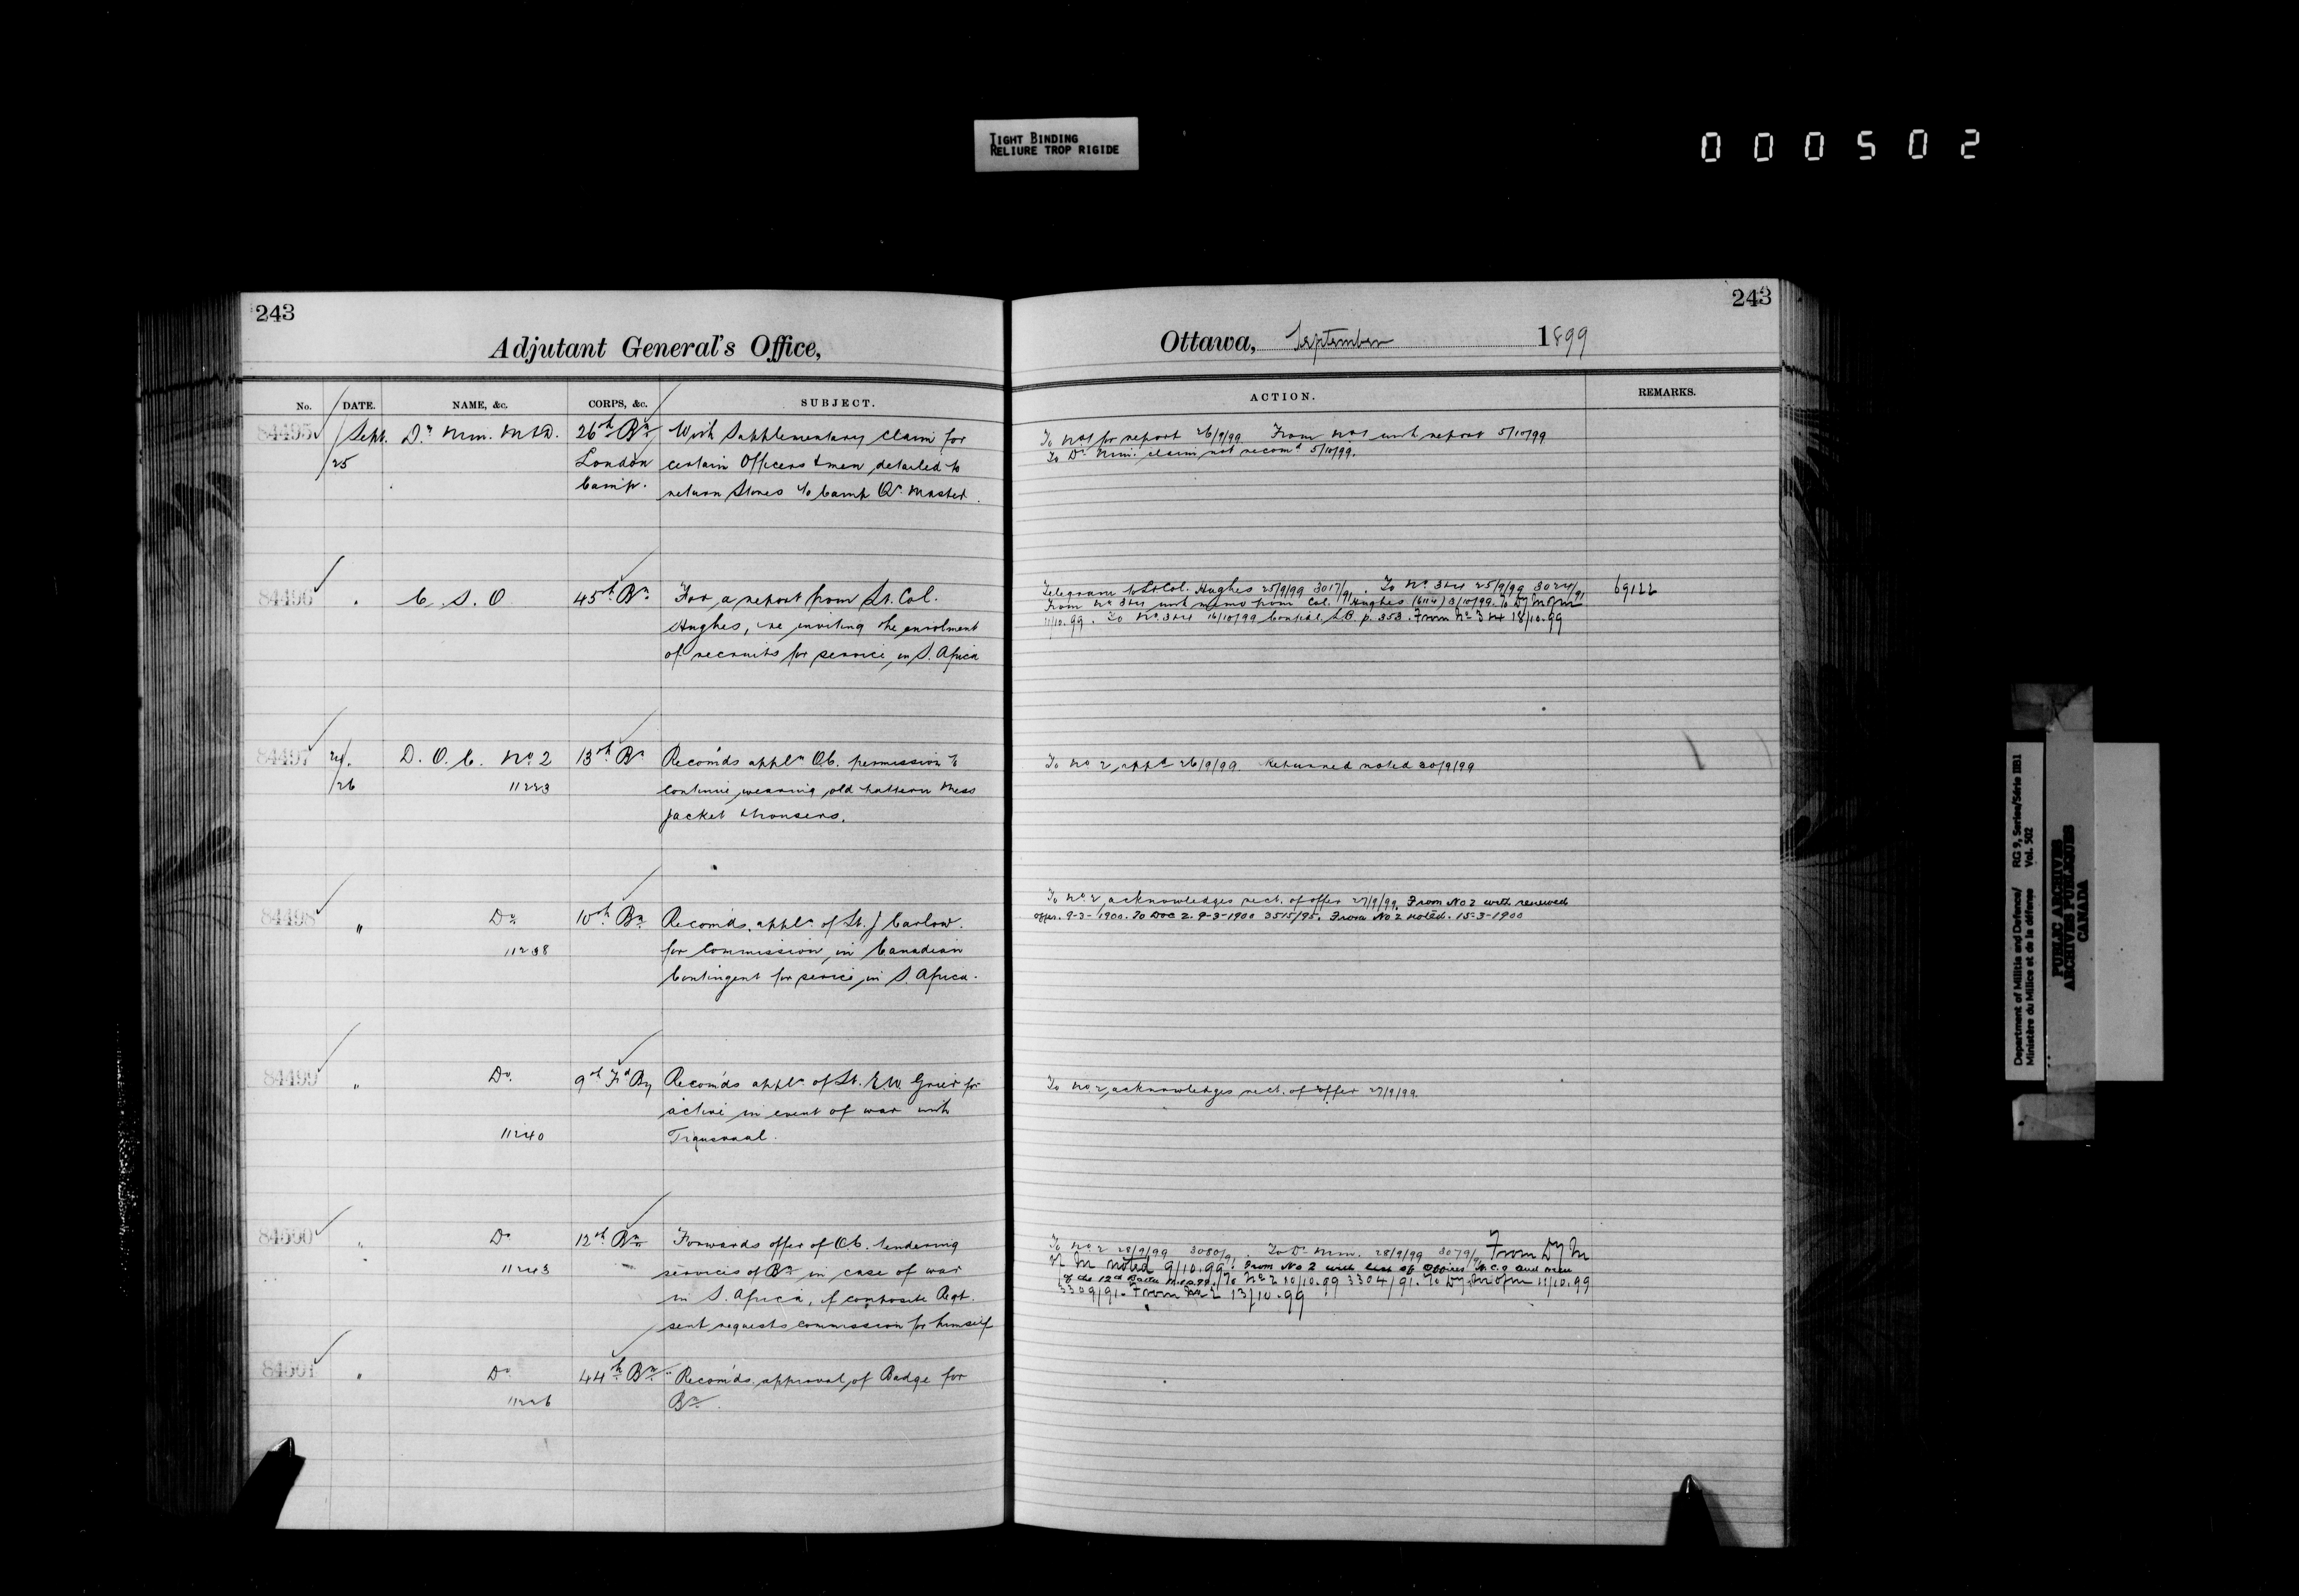 TIGHT BINDING
RELIURE TROP RIGIDE
000502
243
Adjutant General's Office,
No. DATE. NAME, &c. CORPS, &c. SUBJECT.
84495 Sept. Dy. Min. M&D. 26th Bn. With Supplementary Claim for
25 London certain Officers & men detailed to
Camp. return Stores to Camp Qr. Master.
84496 " C. S. O 45th Bn. For a report from Lt. Col.
Hughes, re inviting the enrolment
of recruits for service in S. Africa
84497 26 D. O. C. No 2 13th Bn Recom'ds appln O.C. permission to
11223 continue wearing old pattern Mess
Jacket & trousers.
84498 " Do 10th Bn. Recom'ds. appln. of Lt. J Carlow.
11238 for Commission in Canadian
Contingent for service in S. Africa.
84499 " Do. 9th Fd By Recom'ds appln. of Lt. E.W. Grier for
active in event of war with
11240 Transvaal.
84500 " Do 12th Bn. Forwards offer of O.C. tendering
11243 services of Bn in case of war
in S. Africa, if composite Regt.
sent requests commission for himself
84501 " Do 44th Bn. Recom'ds approval of Badge for
11226 Bn.
243
Ottawa, September 1899
ACTION. REMARKS.
To No 1 for report 26/9/99. From No 1 with report 5/10/99
To Dy. Min. claim not recomd 5/10/99.
Telegram to Lt Col. Hughes 25/9/99 3017/91. To No. 3&4 25/9/99 3024/91 69122
From No 3&4 with memo from Col. Hughes (6114) 3/10/99. To Dy M of M
11/10.99. To No. 3&4 16/10/99 Confid. L.B. p. 353. From No 3&4 18/10.99
To No 2, appd 26/9/99. Returned noted 30/9/99
To No 2, acknowledges rect. of offer 27/9/99. From No 2 with renewed
offer. 9-3-1900. To Doc 2. 9-3-1900 3515/95. From No 2 noted. 15-3-1900
To No 2, acknowledges rect. of offer 27/9/99.
To No 2 28/9/99 3080/91. To Dy. Min. 28/9/99 3079/91 From Dy M
of M noted 9/10.99. From No 2 with list of Officers N.C.O and men
of the 12th To No 2 10/10.99 3304/91. To Dy M of M 11/10.99
3309/91. From No 2 13/10.99
Department of Militia and Defence/ RG 9, Series/Série IIB1
Ministère du Milice et de la défense Vol. 502
PUBLIC ARCHIVES
ARCHIVES PUBLIQUES
CANADA